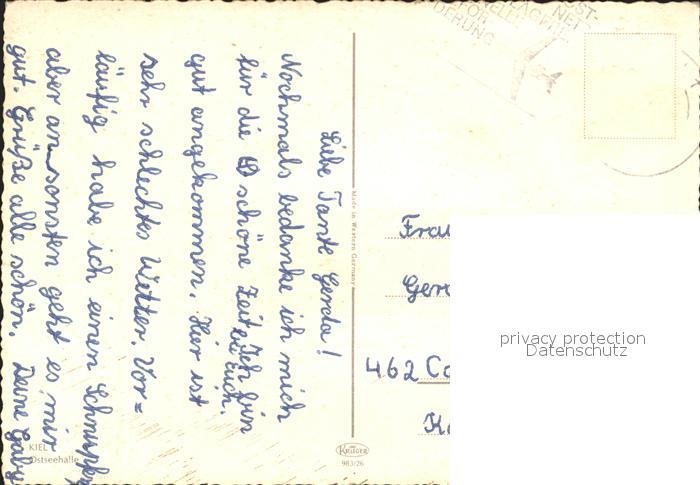 Liebe Tante Gerda!
Nochmals bedanke ich mich
für die schöne Zeit bei Euch. Ich bin
gut angekommen. Hier ist
sehr schlechtes Wetter. Vor=
läufig habe ich einen Schnupfen
aber ansonsten geht es mir
gut. Grüße alle schön. Deine Gaby
Made in Western Germany
KIEL
Ostseehalle
KRÜGER
983/26
FÖR
DERUNG
Frau
462 Ca
privacy protection
Datenschutz